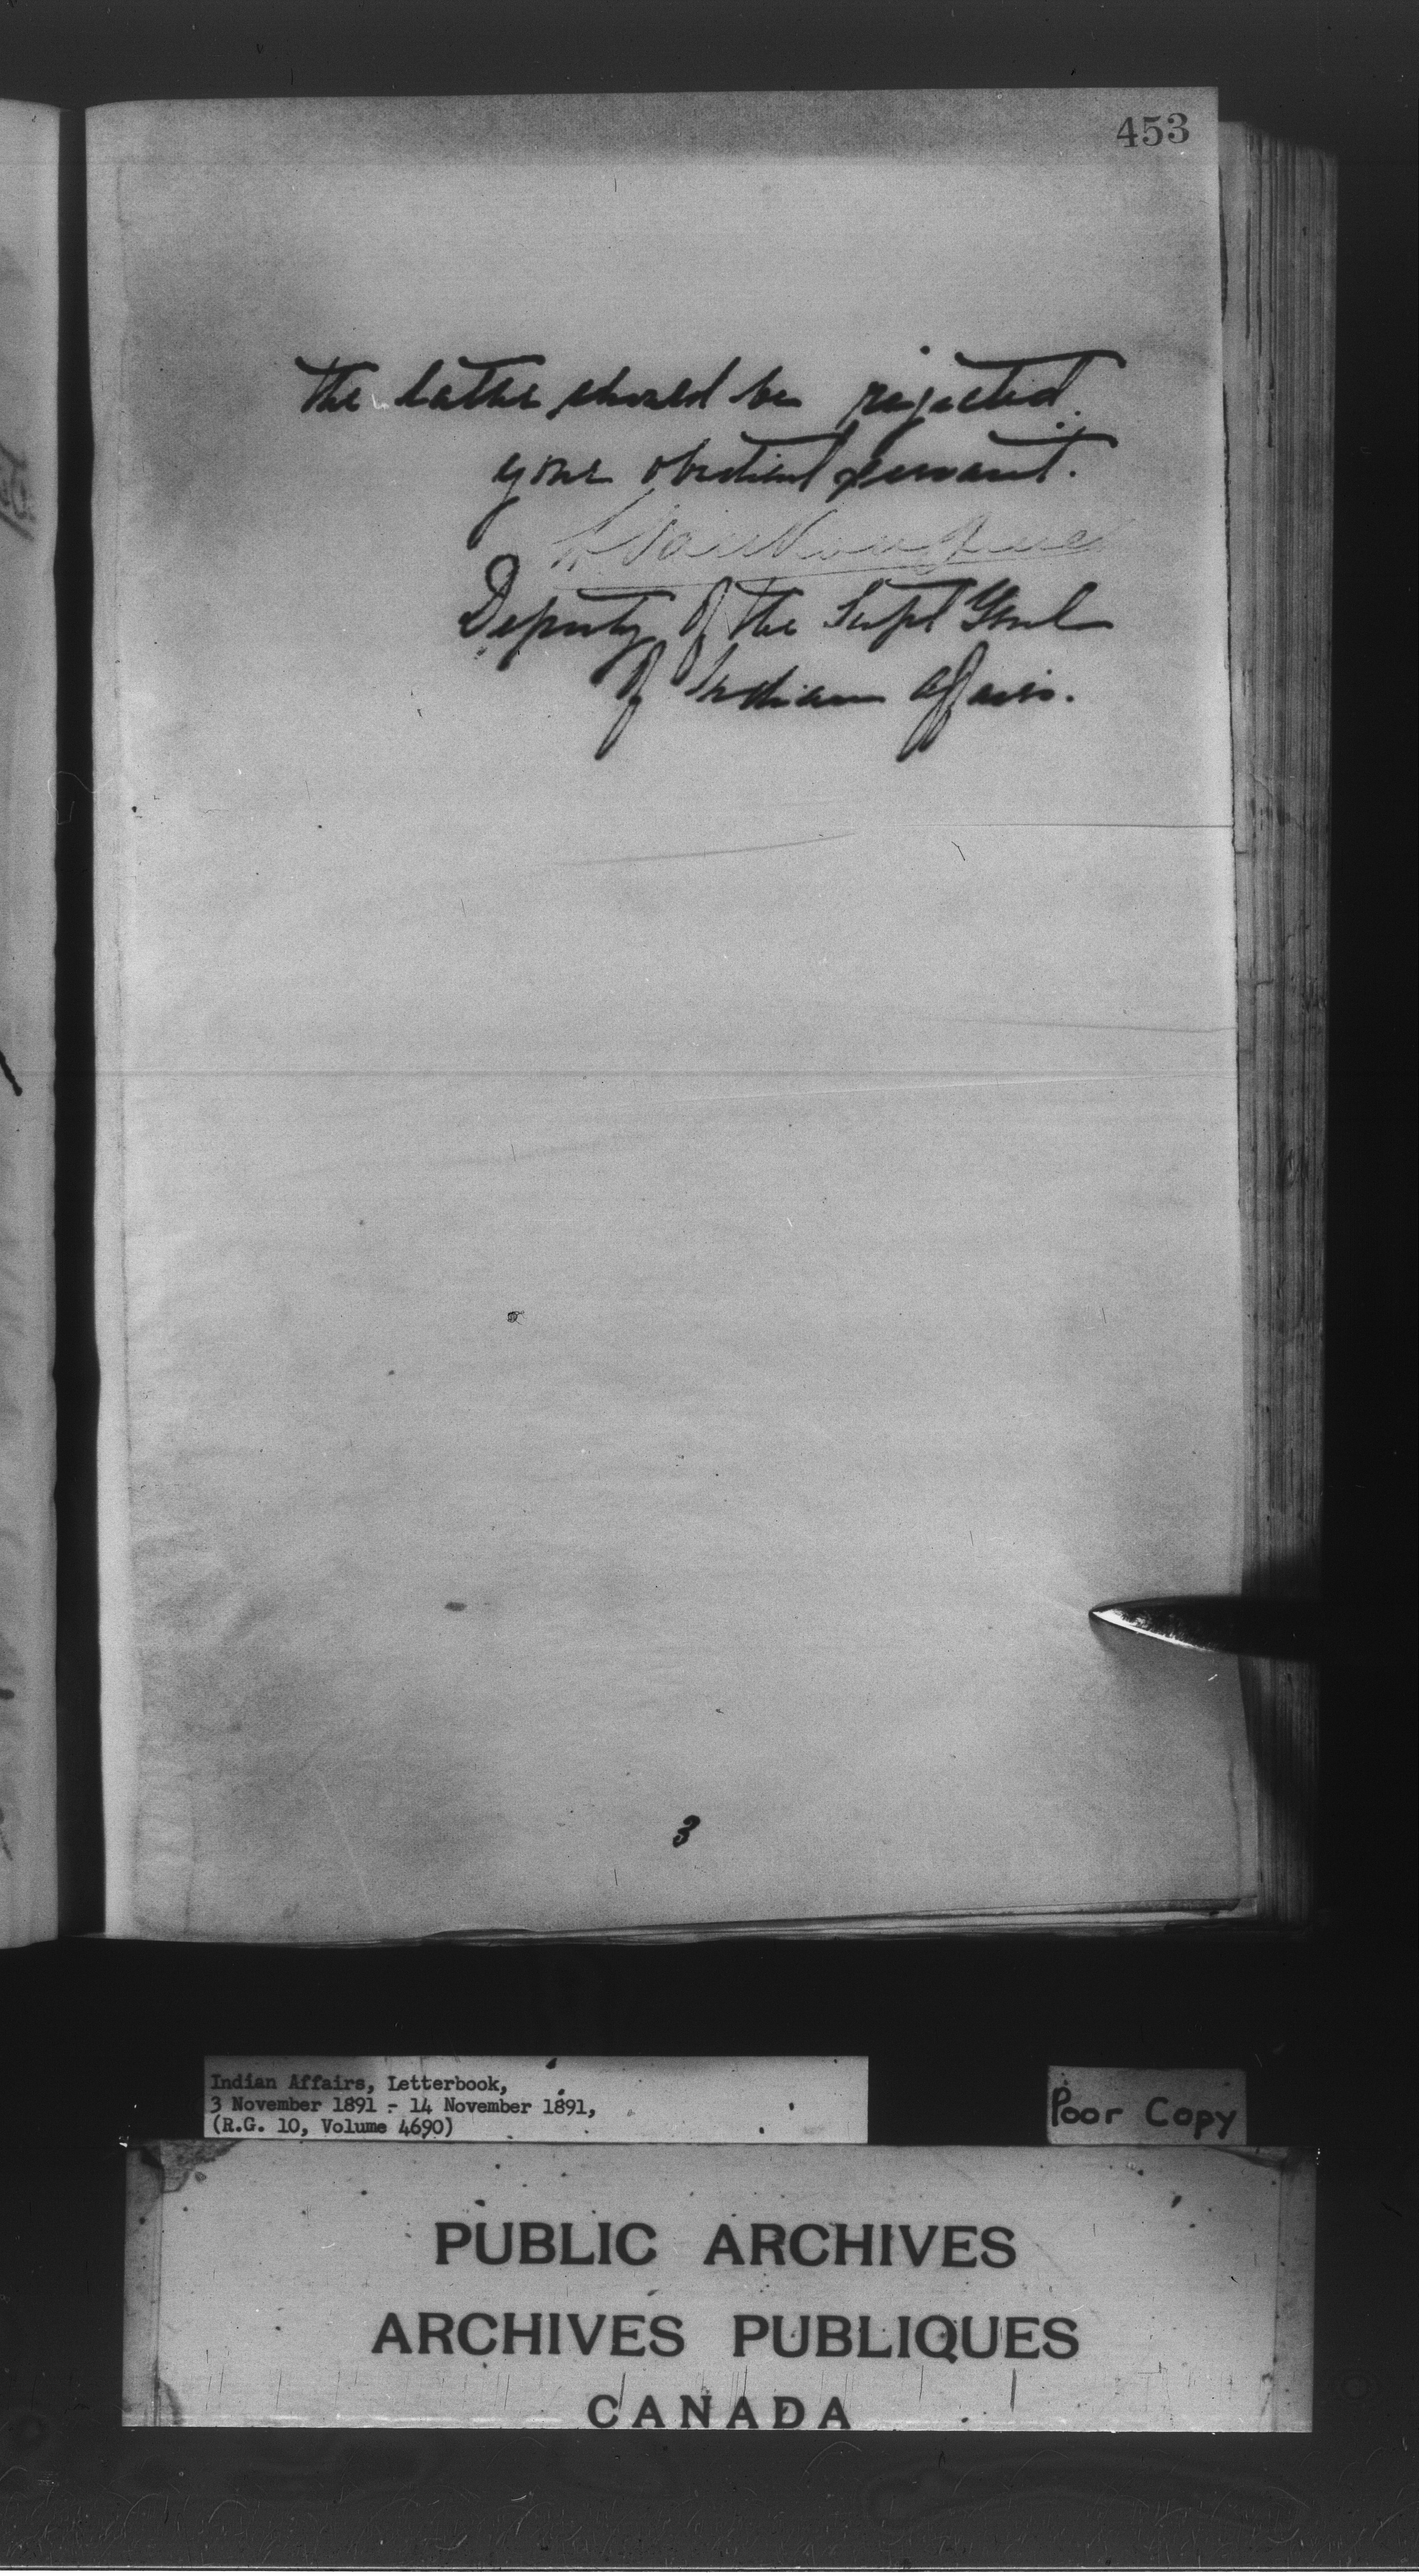 453
the latter should be rejected.
your obedient servant.
L. Vankoughnet
Deputy of the Supt Genl
of Indian Affairs.
3
Indian Affairs, Letterbook,
3 November 1891 - 14 November 1891,
(R.G. 10, Volume 4690)
Poor Copy
PUBLIC ARCHIVES
ARCHIVES PUBLIQUES
CANADA